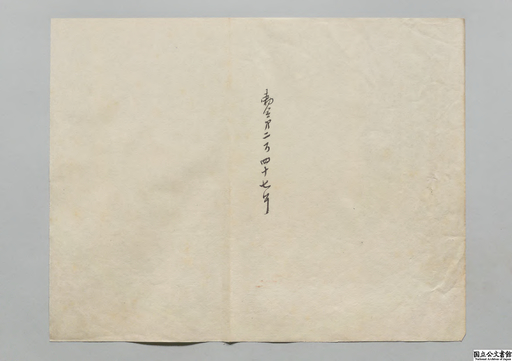 勅令第二百四十七号
国立公文書館
National Archives of Japan